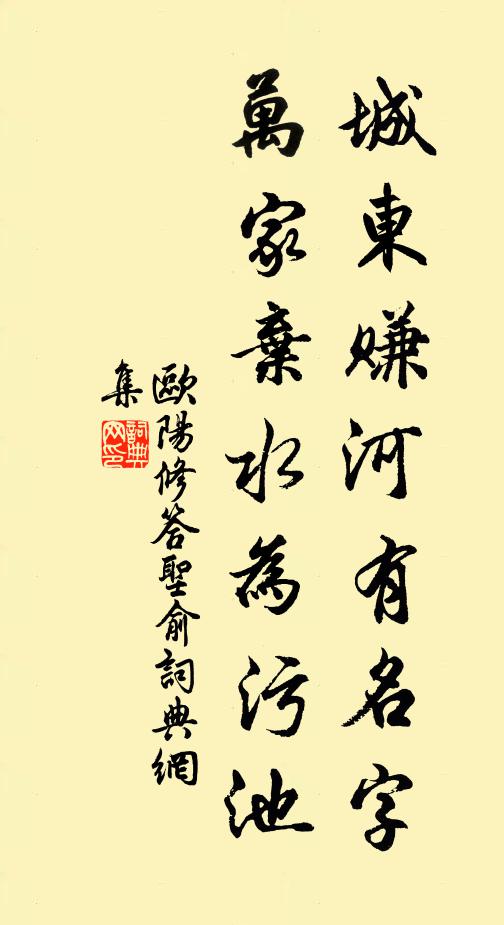 城東賺河有名字
萬家棄水為污池
歐陽修答聖俞詞典網
集
詞典
网印